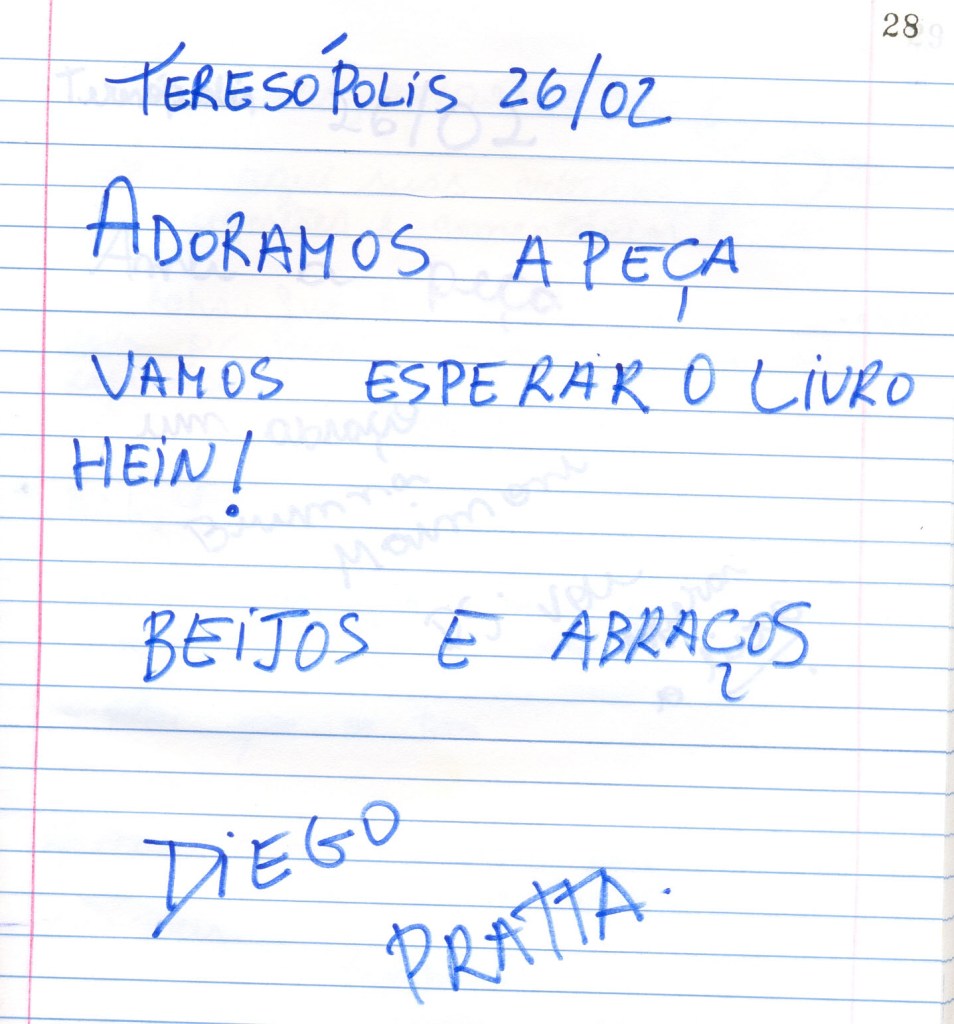 28
TERESÓPOLIS 26/02
ADORAMOS A PEÇA
VAMOS ESPERAR O LIVRO
HEIN!
BEIJOS E ABRAÇOS
DIEGO
PRATTA.